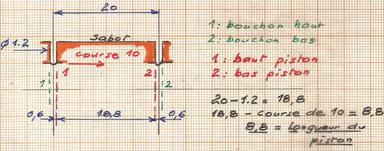 20
Ø 1.2
sabot
course 10
1
2
1
2
0,6
18,8
0,6
1: bouchon haut
2: bouchon bas
1: haut piston
2: bas piston
20-1.2 = 18,8
18,8 - course de 10 = 8,8
8,8 = longueur du
piston